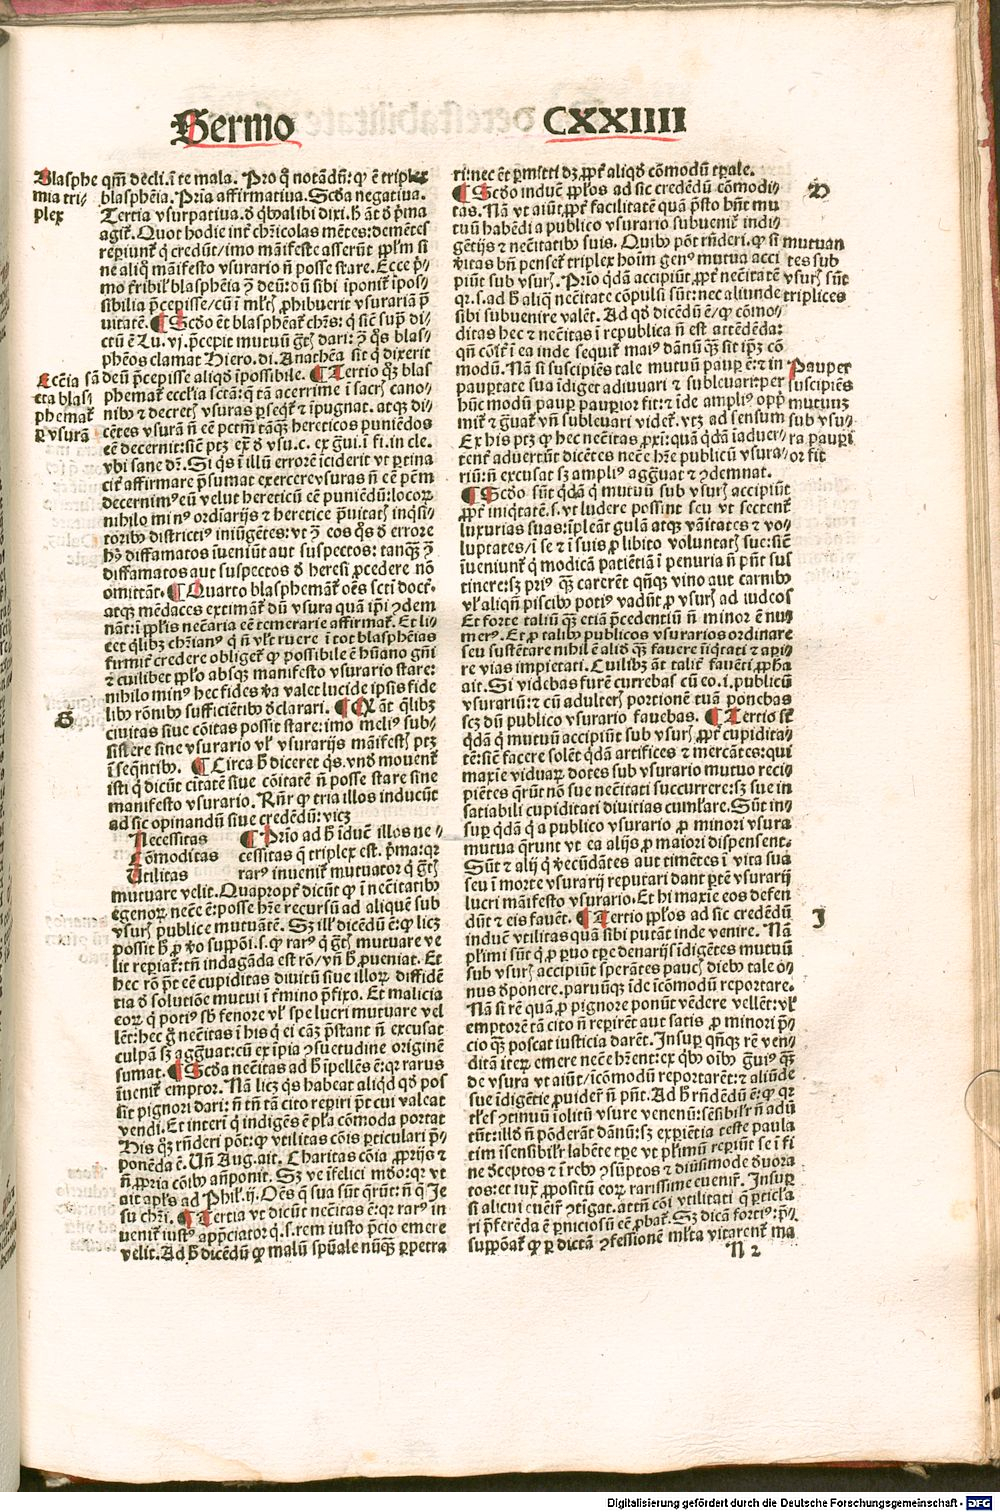 Sermo CXXIIII
Blasphe
mia tri⸗
plex
qm̄ decli.ī te mala. Pro q̄ notādū: ꝙ ē triplex
blasphēia. Pria affirmatiua. Scda negatiua.
Tertia vsurpatiua. dixi. p̄ma
agit̄. Quot hodie mētes: demētes
credūt/imo māifeste asserūt si
ne aliq̄ māifesto vsurario n̄ posse stare. Ecce p̄⸗
mo blasphēia ipos⸗
sibilia p̄cepisse/cū ī phibuerit vsurariā p̄
uitatē. ¶ Scdo ēt blasphēat̄ sup̄ di⸗
ctū ē Lu. vj. p̄cepit mutuū dari: blas⸗
phēos clamat Hiero. di. Anathēa sit q̄ dixerit
Ecc̄ia sā
cta blas⸗
phemat̄
ꝑ vsurā
deū p̄cepisse aliqd īpossibile. ¶ Tertio blas
phemat̄ ecclīa sctā: q̄ tā acerrime ī cano⸗
vsuras ꝑseqt̄ ⁊ īpugnat. atqꝫ di⸗
cētes vsurā n̄ eē hereticos puniēdos
eē decernit: vsu. c. ex gͣui. ī fi. in cle.
vbi sane dr̄. Si qs ī illū errorē īciderit vt ꝑtina
affirmare p̄sumat exercere vsuras n̄ eē
decernimꝰ eū velut hereticū eē puniēdū: locorꝫ
nihilo minꝰ ordīarijs ⁊ heretice p̄uitatꝭ inqsi⸗
districtiꝰ iniūgētes: vt eos errore
diffamatos īueniūt aut suspectos: tanqꝫ
diffamatos aut suspectos d̄ heresi ꝓcedere nō
omittāt. ¶ Quarto blasphemāt̄ oēs scti doct̄.
atqꝫ mēdaces extimāt̄ dū vsura quā
necc̄aria eē temerarie affirmat̄. Et li⸗
eet qlibꝫ n̄ tuere ī tot blasphēias
firmit̄ credere obliget̄ ꝙ possibile ē
⁊ cuilibet pplo absqꝫ manifesto vsurario stare:
nihilo minꝰ hec fides valet lucide ipsis fide
libꝰ rōnibꝰ sufficiētibꝰ d̄clarari. ¶ Ꙙ āt qlibꝫ
G
ciuitas siue cōitas possit stare: imo meliꝰ sub⸗
sistere sine vsurario vsurarijs ptꝫ
ī seqntibꝰ. ¶ Circa diceret qs. vnd̄ mouent̄
isti q̄ dicūt citatē siue cōitatē n̄ posse stare sine
manifesto vsurario. Rn̄r ꝙ tria illos inducūt
ad sic opinandū siue credēdū: vicꝫ
Necessitas
Cōmoditas
Utilitas
¶ Prio ad īduc̄ illos ne⸗
cessitas q̄ triplex est. p̄ma: qr
rarꝰ inuenit̄ mutuator q̄
mutuare velit. Quaꝓpt̄ dicūt ꝙ ī necc̄itatibꝰ
egenorꝫ necc̄e ē: posse hr̄e recursū ad aliquē sub
publice mutuātē. Sꝫ dicēdū ē: ꝙ licꝫ
possit q̄ rarꝰ mutuare ve
lit tn̄ indagāda est rō/vn̄ ꝓueniat. Et
hec rō p̄t eē cupiditas diuitū siue illorꝫ diffidē
tia d̄ solutiōe mutui ī t̄mino p̄fixo. Et malicia
eorꝫ q̄ potiꝰ fenore spe lucri mutuare vel
lēt: hec necc̄itas ī his q̄ ei cāꝫ p̄stant n̄ excusat
culpā sꝫ cū ex īpia ꝯsuetudine originē
sumat. ¶ Scda necc̄itas ad īpellēs ē: qr rarus
īuenit̄ emptor. Nā licꝫ qs habeat aliqd qd̄ pos
sit pignori dari: n̄ tn̄ tā cito reꝑiri p̄t cui valeat
vendi. Et interi q̄ indigēs ē pl̄a cōmoda portat
His qꝫ rn̄deri pōt: ꝙ vtilitas cōis ꝑticulari p̄⸗
ponēda ē. Un̄ Aug. ait. Charitas cōia ꝓprijs ⁊
n̄ ꝓpria cōibꝰ an̄ponit. Sꝫ ve īfelici mdo: qr vt
ait apls ad Phil. ij. Oēs q̄ sua sūt qrūt: n̄ q̄ Je
su chri. ¶ Tertia vt dicūt necc̄itas ē: qr rarꝰ in
uenit̄ iustꝰ app̄ciator q̄. s. rem iusto p̄cio emere
velit. Ad dicēdū ꝙ malū spūale nūqꝫ ꝑpetra
ri: nec ēt ꝑmitti dꝫ ꝓpt̄ aliqd cōmodū tꝑale.
D
¶ Scdo inducūt pplos ad sic credēdū cōmodi⸗
tas. Nā vt aiūt ꝓpt̄ facilitatē quā p̄sto hn̄t mu
tuū habēdi a publico vsurario subuenit̄ indi⸗
gētijs ⁊ necc̄itatibꝰ suis. Quibꝰ pōt rn̄deri. ꝙ si
mutuan
tes sub
vsurꝭ sūt
triplices
bn̄ penset̄ triplex hoīm genꝰ mutua acci
piūt sub vsurꝭ. Prio qdā accipiūt ꝓpt̄ necc̄itatē
qr. s. ad aliq̄ necc̄itate cōpulsi sūt: nec aliunde
sibi subuenire valēt. Ad qd̄ dicēdū ē/ꝙ cōmo⸗
ditas hec ⁊ necc̄itas ī republica n̄ est attēdēda:
qn̄ ī ea inde sequit̄ maiꝰ dānū qꝫ sit ipꝫ cō
modū. Nā si suscipiēs tale mutuū pauꝑ ē: ⁊ in
Pauper
suscipiēs
mutuū
sub vsu⸗
ra pauꝑi
or fit
pauꝑtate sua īdiget adiuuari ⁊ subleuari: per
hūc modū pauꝑ pauꝑior fit: ⁊ īde ampliꝰ opp̄
mit̄ ⁊ vn̄ subleuari videt̄. vtꝫ ad sensum
Ex his ptꝫ ꝙ hec necc̄itas ꝓxi: quā qdā īaduer⸗
tent̄ aduertūt dicētes necc̄e hr̄e publicū vsura⸗
riū: n̄ excusat sꝫ ampliꝰ ⁊ ꝯdemnat.
¶ Scdo sūt qdā q̄ mutuū sub vsurꝭ accipiūt
ꝓpt̄ iniqtatē. s. vt ludere possint seu vt sectent̄
luxurias suas: īpleāt gulā atqꝫ vāitates ⁊ vo⸗
luptates/ī se ⁊ ī suis ꝓ libito voluntatꝭ sue: sicut
īueniunt̄ q̄ modicā patiētiā ī penuria n̄ pn̄t sus
tinere: sꝫ priꝰ qꝫ carerēt qn̄qꝫ vino aut carnibꝰ
aliqn̄ piscibꝰ potiꝰ vadūt ꝓ vsurꝭ ad iudeos
Et forte taliū qꝫ etiā p̄cedentiū n̄ minor ē nu⸗
merꝰ. Et ꝓ talibꝰ publicos vsurarios ordinare
seu sustētare nihil ē aliud qꝫ fauere iniqtati ⁊ aꝑi⸗
re vias impietati. Cuilibꝫ āt talit̄ fauēti
ait. Si videbas furē currebas cū eo. i. publicū
vsurariū: ⁊ cū adulterꝭ portionē tuā ponebas
scꝫ dū publico vsurario fauebas. ¶ Tertio sūt
qdā q̄ mutuū accipiūt sub vsurꝭ ꝓpt̄ cupidita⸗
tē: sic facere solēt qdā artifices ⁊ mercātes: qui
maxie viduarꝫ dotes sub vsurario mutuo reci⸗
piētes qrūt nō sue necc̄itati succurrere: sꝫ sue in
satiabili cupiditati diuitias cumlare. Sūt in⸗
suꝑ qdā q̄ a publico vsurario ꝓ minori vsura
mutua qrunt vt ea alijs ꝓ maiori dispensent.
Sūt ⁊ alij q̄ aut timētes ī vita sua
seu ī morte vsurarij reputari dant ꝑtē vsurarij
lucri manifesto vsurario. Et hi maxie eos defen
dūt ⁊ eis fauēt. ¶ Tertio pplos ad sic credēdū
J
inducē vtilitas quā sibi putāt inde venire. Nā
plīmi sūt q̄ ꝓ paruo tꝑe denarijs īdigētes mutuū
sub vsurꝭ accipiūt sperātes paucꝭ diebꝰ tale o⸗
nus d̄ponere. paruūqꝫ īde īcōmodū reportare.
Nā si rē quā ꝓ pignore ponūt vēdere vellēt:
emptorē tā cito n̄ reꝑirēt aut satis ꝓ minori p̄⸗
cio qꝫ poscat iusticia darēt. Insuꝑ qn̄qꝫ rē ven⸗
ditā iteꝝ emere necc̄e hr̄ent: ex qbꝰ oībꝰ gͣuiꝰ qꝫ
de vsura vt aiūt/īcōmodū reportarēt: ⁊ aliūde
sue īdigētie ꝓuideri n̄ pn̄t. Ad rn̄dēdū ē: ꝙ qr
tles ꝯtinuū īolitū vsure venenū: sēsibilr n̄ adū
tūt: illd n̄ pōderāt dānū: sꝫ exꝑiētia teste paula
tim īsensibilr labēte tꝑe vt plīmū reꝑiūt se ī fi
ne d̄ceptos ⁊ ī rebꝰ ꝯsūptos ⁊ diuismode d̄uora
tos: et iuxͣ ꝓpositū eorꝫ rarissime euenit̄. Insuꝑ
si alicui eueīt̄ ꝯtigat. attn̄ cōi vtilitati q̄ ꝑticla
ri p̄ferēda ē ꝑniciosū eē ꝓbat̄. Sꝫ dicā fortiꝰ: p̄⸗
suppōat̄ ꝙ ꝑ dictā ꝯfessionē mlta vitarent̄ ma
N 2
Digitalisierung gefördert durch die Deutsche Forschungsgemeinschaft - DFG